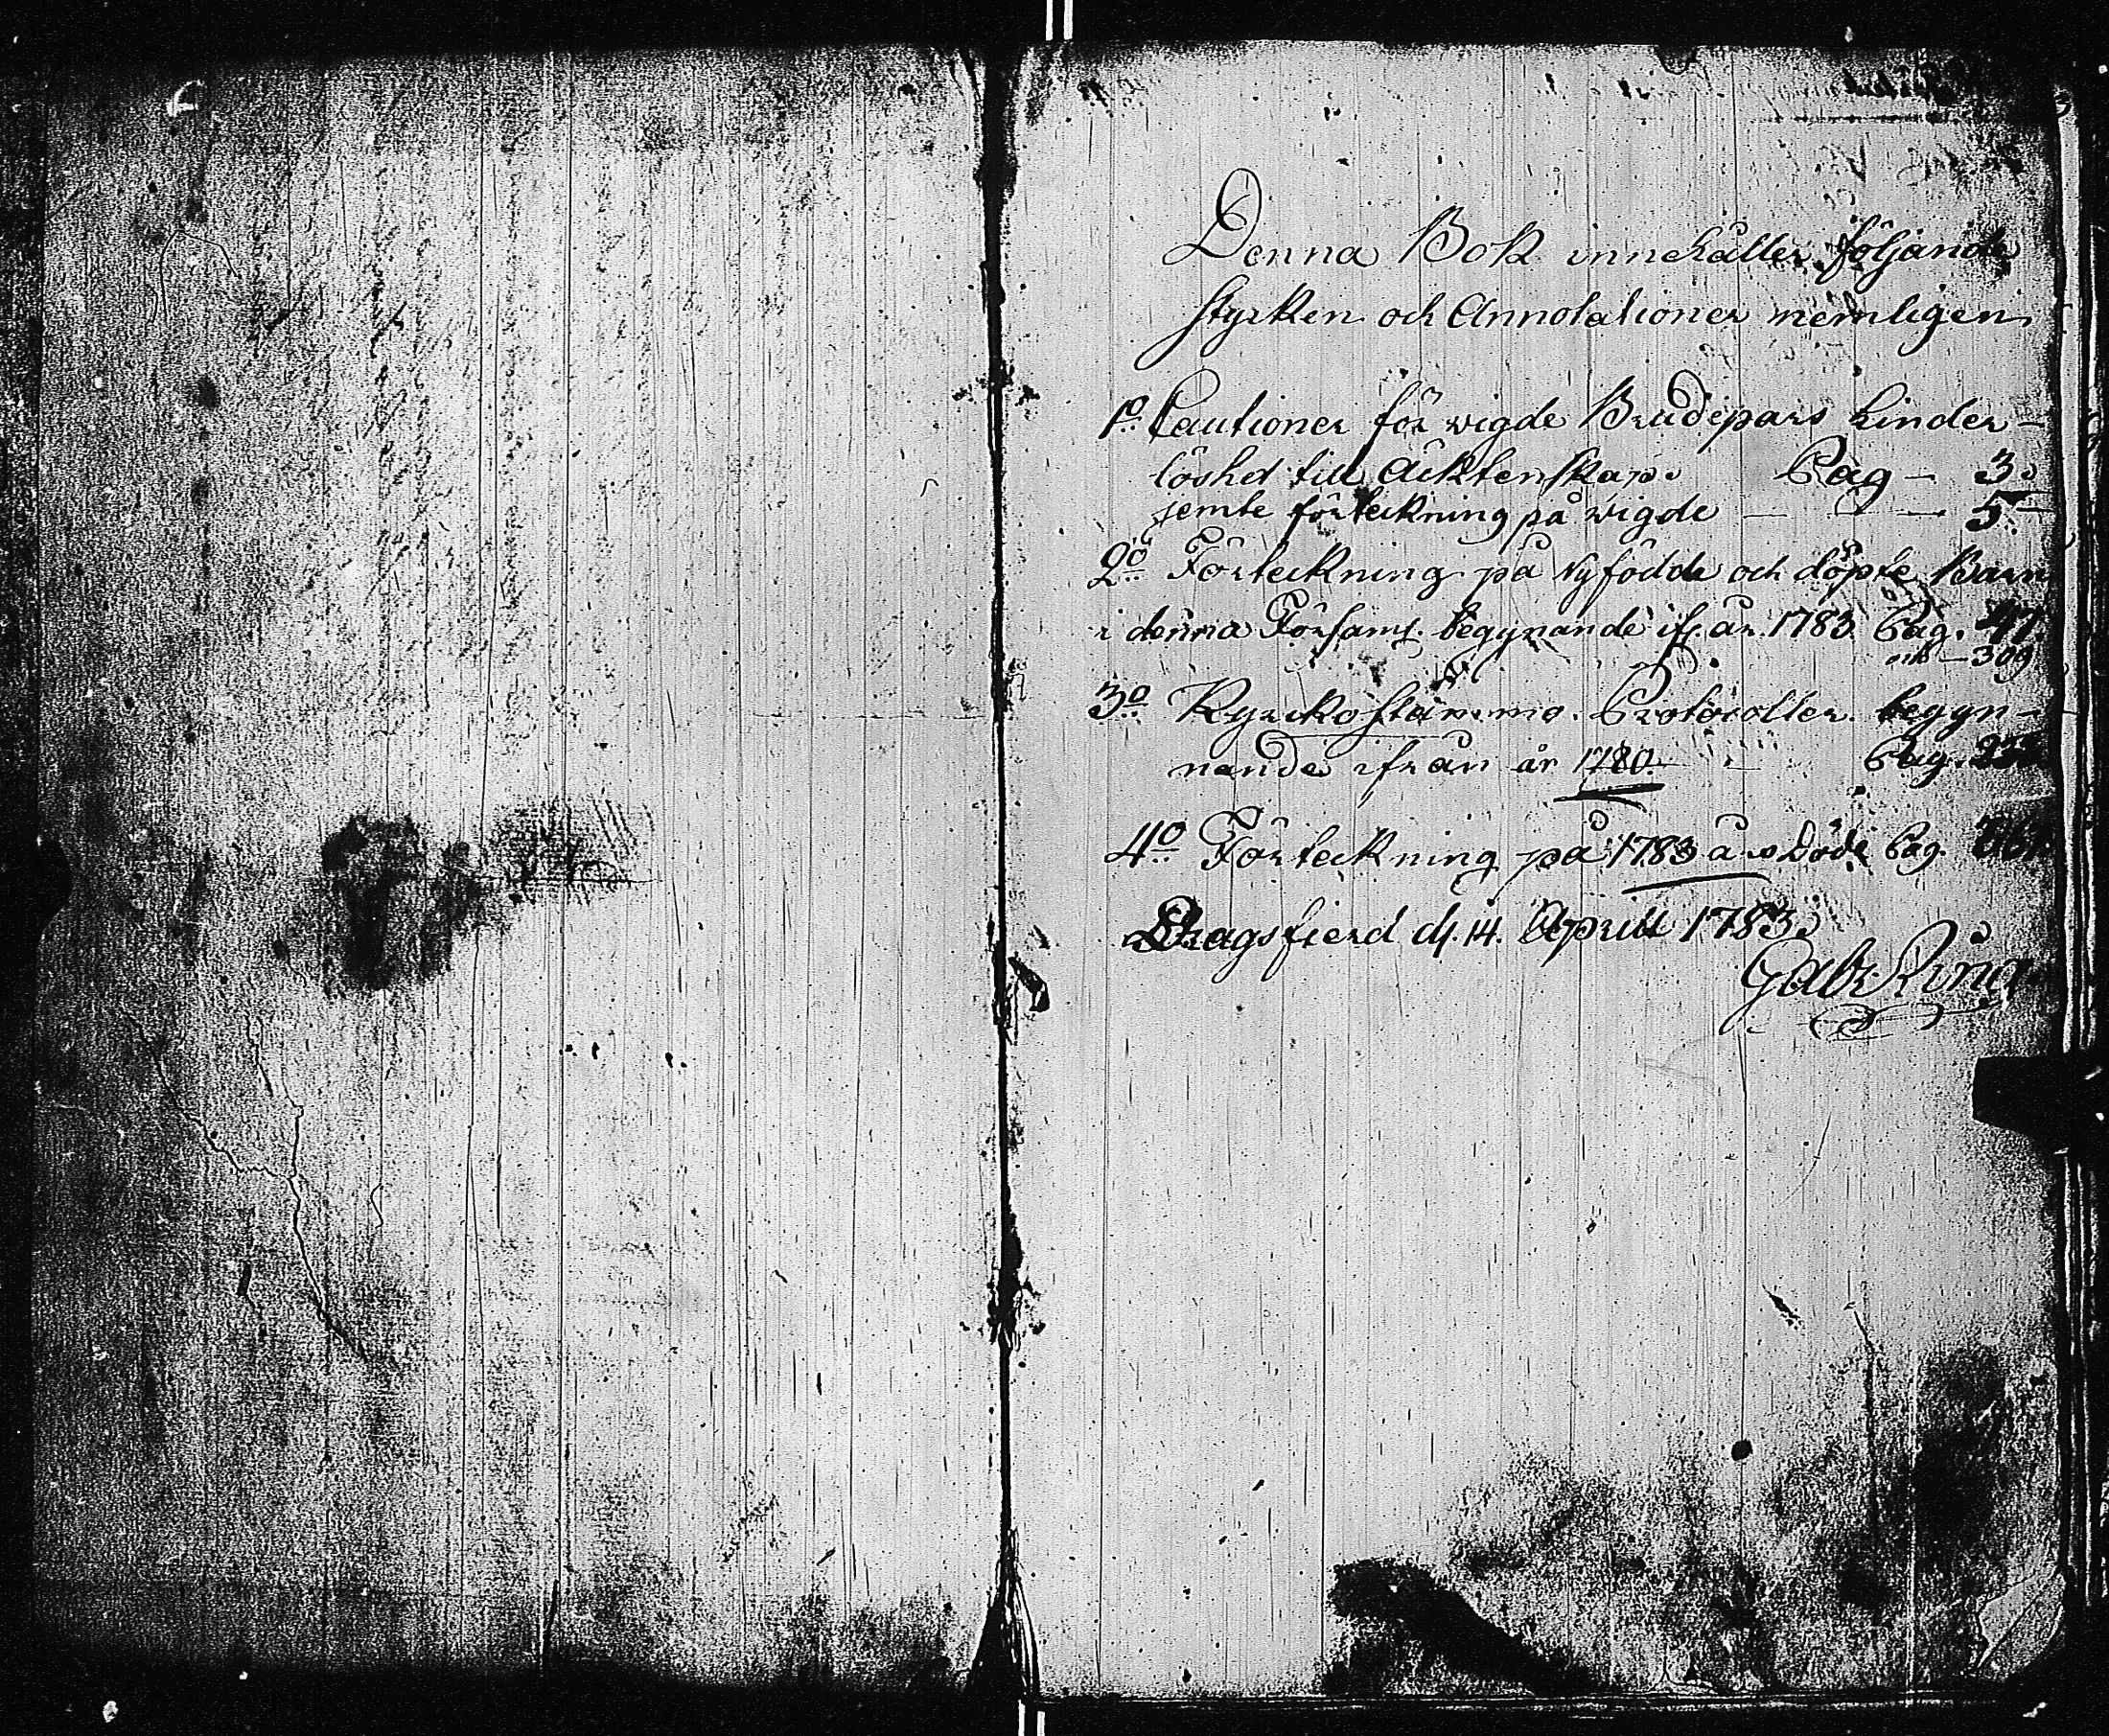 Denna Bok innehåller följande
stycken och Annotationer nemligen
1º Cautioner för wigde Brudepars hinder-
löshet till Äcktenskap. Pag - 3.
jemte förteckning på wigde - - - 5.
2º Förteckning på nyfödde och döpte Barn
i denna Församl. begynande ifr. år 1783 Pag. 47.
och - 309
3º Kyrckostämmo Protocoller begyn-
nande ifrån år 1780. - - Pag.
4º Förteckning på 1783 års Döde Pag.
Dragsfierd d. 14. Aprill 1783.
Gabr.